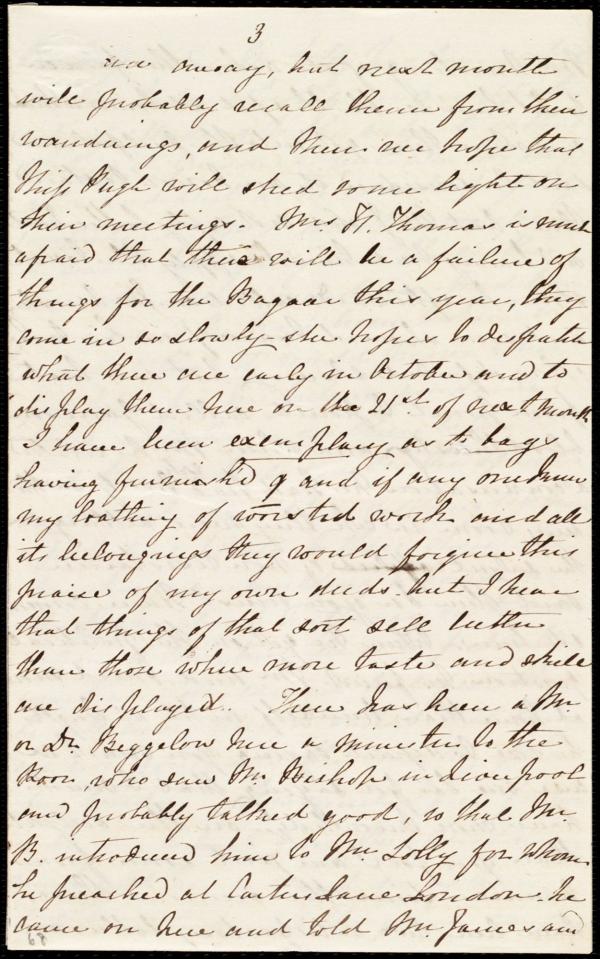 3
are away, but next month
will probably recall them from their
wanderings, and then we hope that
Miss Pugh will shed some light on
their meetings. Mrs H. Thomas is much
afraid that there will be a failure of
things for the Bazaar this year, they
come in so slowly - she hopes to despatch
what there are early in October and to
display them here on the 21st of next month
I have been exemplary as to bags
having furnish'd 9 and if any one knew
my loathing of worsted work and all
its belongings they would forgive this
praise of my own deeds. but I hear
that things of that sort sell better
than those where more taste and skill
are displayed. There has been a Mr.
or Dr. Beggelow here a minister to the
Poor, who saw Mr. Bishop in Liverpool
and probably talked good, so that Mr.
B. introduced him to Mr. Lolly for whom
he preached at Carter Lane London. he
came on here and told Mr. James and
68